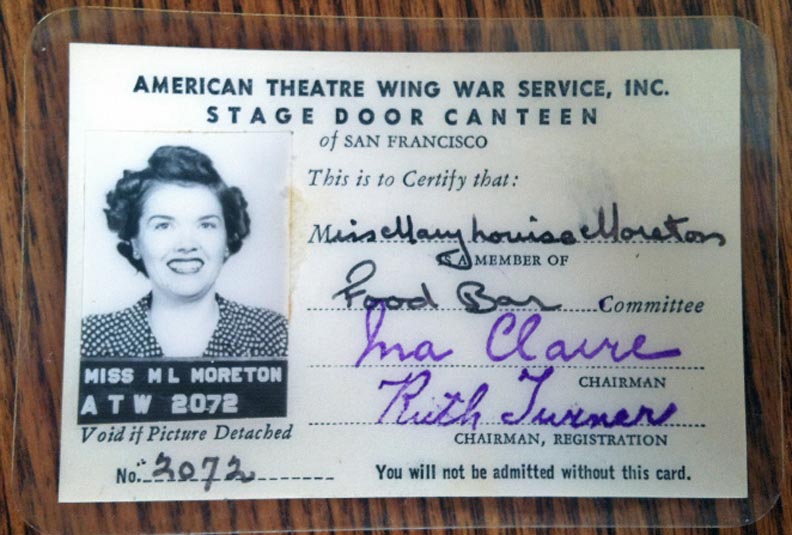 AMERICAN THEATRE WING WAR SERVICE, INC.
STAGE DOOR CANTEEN
of SAN FRANCISCO
This is to Certify that:
Miss Mary Louise Moreton
IS A MEMBER OF
Food Bar Committee
Ina Claire
CHAIRMAN
Ruth Turner
CHAIRMAN, REGISTRATION
MISS M L MORETON
ATW 2072
Void if Picture Detached
No. 2072
You will not be admitted without this card.